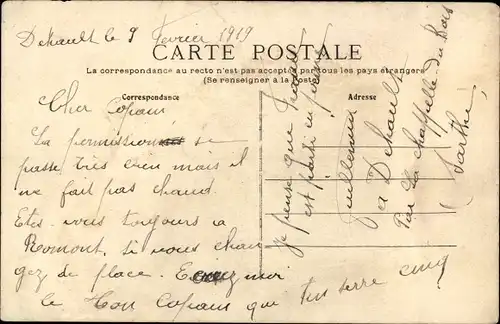 Dehault le 9 Février 1919
CARTE POSTALE
La correspondance au recto n'est pas acceptée par tous les pays étrangers
(Se renseigner à la Poste)
Correspondance
Adresse
Cher Copain
La permission se
passe très bien mais il
ne fait pas chaud.
Etes-vous toujours a
Romont, si vous chan
gez de place. Ecrivez moi
le Bon Copain qui ten serre cinq
Je pense que
est parti en perme
Guillemin
a Dehault
Par La Chappelle du Bois
Sarthe